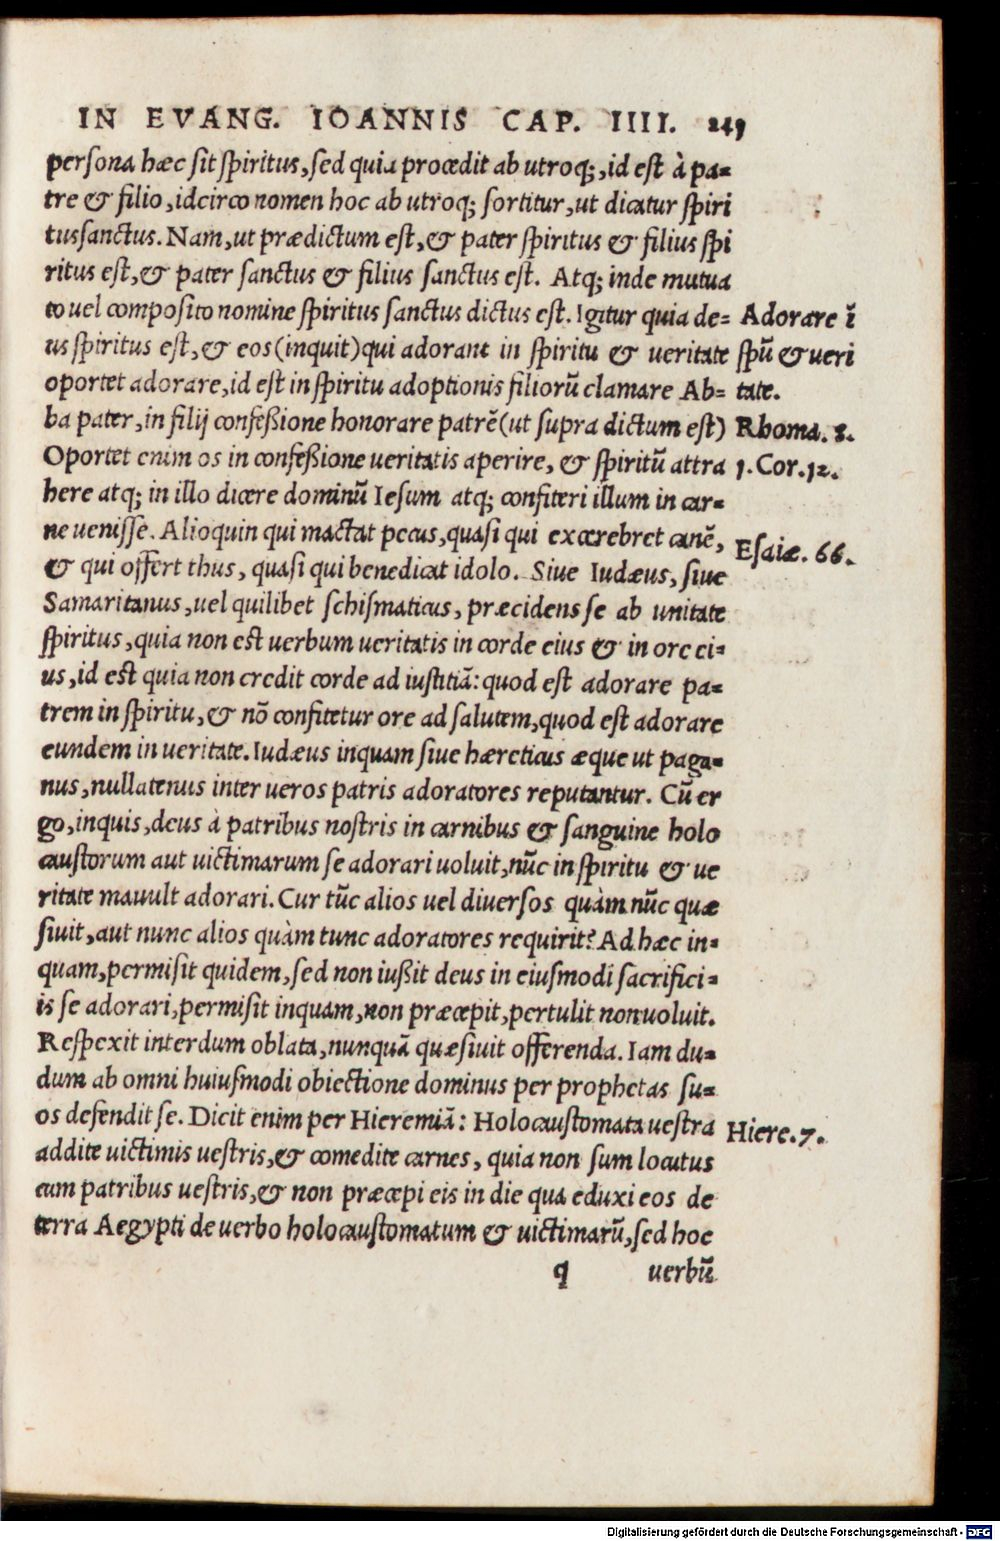 IN EVANG. IOANNIS CAP. IIII. 249
persona hæc sit spiritus, sed quia procedit ab utroq;, id est à pa=
tre & filio, idcirco nomen hoc ab utroq; sortitur, ut dicatur spiri
tussanctus. Nam, ut prædictum est, & pater spiritus & filius spi
ritus est, & pater sanctus & filius sanctus est. Atq; inde mutua
to uel composito nomine spiritus sanctus dictus est. Igitur quia de=
us spiritus est, & eos (inquit) qui adorant in spiritu & veritate
oportet adorare, id est in spiritu adoptionis filiorū clamare Ab=
ba pater, in filij confeßione honorare patrē (ut supra dictum est)
Oportet enim os in confeßione ueritatis aperire, & spiritū attra
here atq; in illo dicere dominū Iesum atq; confiteri illum in car=
ne uenisse. Alioquin qui mactat pecus, quasi qui excerebret canē,
& qui offert thus, quasi qui benedicat idolo. Siue Iudæus, siue
Samaritanus, uel quilibet schismaticus, præcidens se ab unitate
spiritus, quia non est uerbum ueritatis in corde eius & in ore ei=
us, id est quia non credit corde ad iustitiā: quod est adorare pa=
trem in spiritu, & nō confitetur ore ad salutem, quod est adorare
eundem in ueritate. Iudæus inquam siue hæreticus æque ut paga=
nus, nullatenus inter ueros patris adoratores reputantur. Cū er
go, inquis, deus à patribus nostris in carnibus & sanguine holo
caustorum aut uictimarum se adorari uoluit, nūc in spiritu & ue
ritate mauult adorari. Cur tūc alios uel diuersos quàm nūc quæ
siuit, aut nunc alios quàm tunc adoratores requirit? Ad hæc in=
quam, permisit quidem, sed non iußit deus in eiusmodi sacrifici=
is se adorari, permisit inquam, non præcepit, pertulit non uoluit.
Respexit interdum oblata, nunquā quæsiuit offerenda. Iam du=
dum ab omni huiusmodi obiectione dominus per prophetas su=
os defendit se. Dicit enim per Hieremiā: Holocaustomata uestra
addite uictimis uestris, & comedite carnes, quia non sum locutus
cum patribus uestris, & non præcepi eis in die qua eduxi eos de
terra Aegypti de uerbo holocaustomatum & uictimarū, sed hoc
q uerbū
Adorare ī
spū & ueri
tate.
Rhoma. 8.
1. Cor. 12.
Esaiæ. 66.
Hiere. 7.
Digitalisierung gefördert durch die Deutsche Forschungsgemeinschaft - DFG